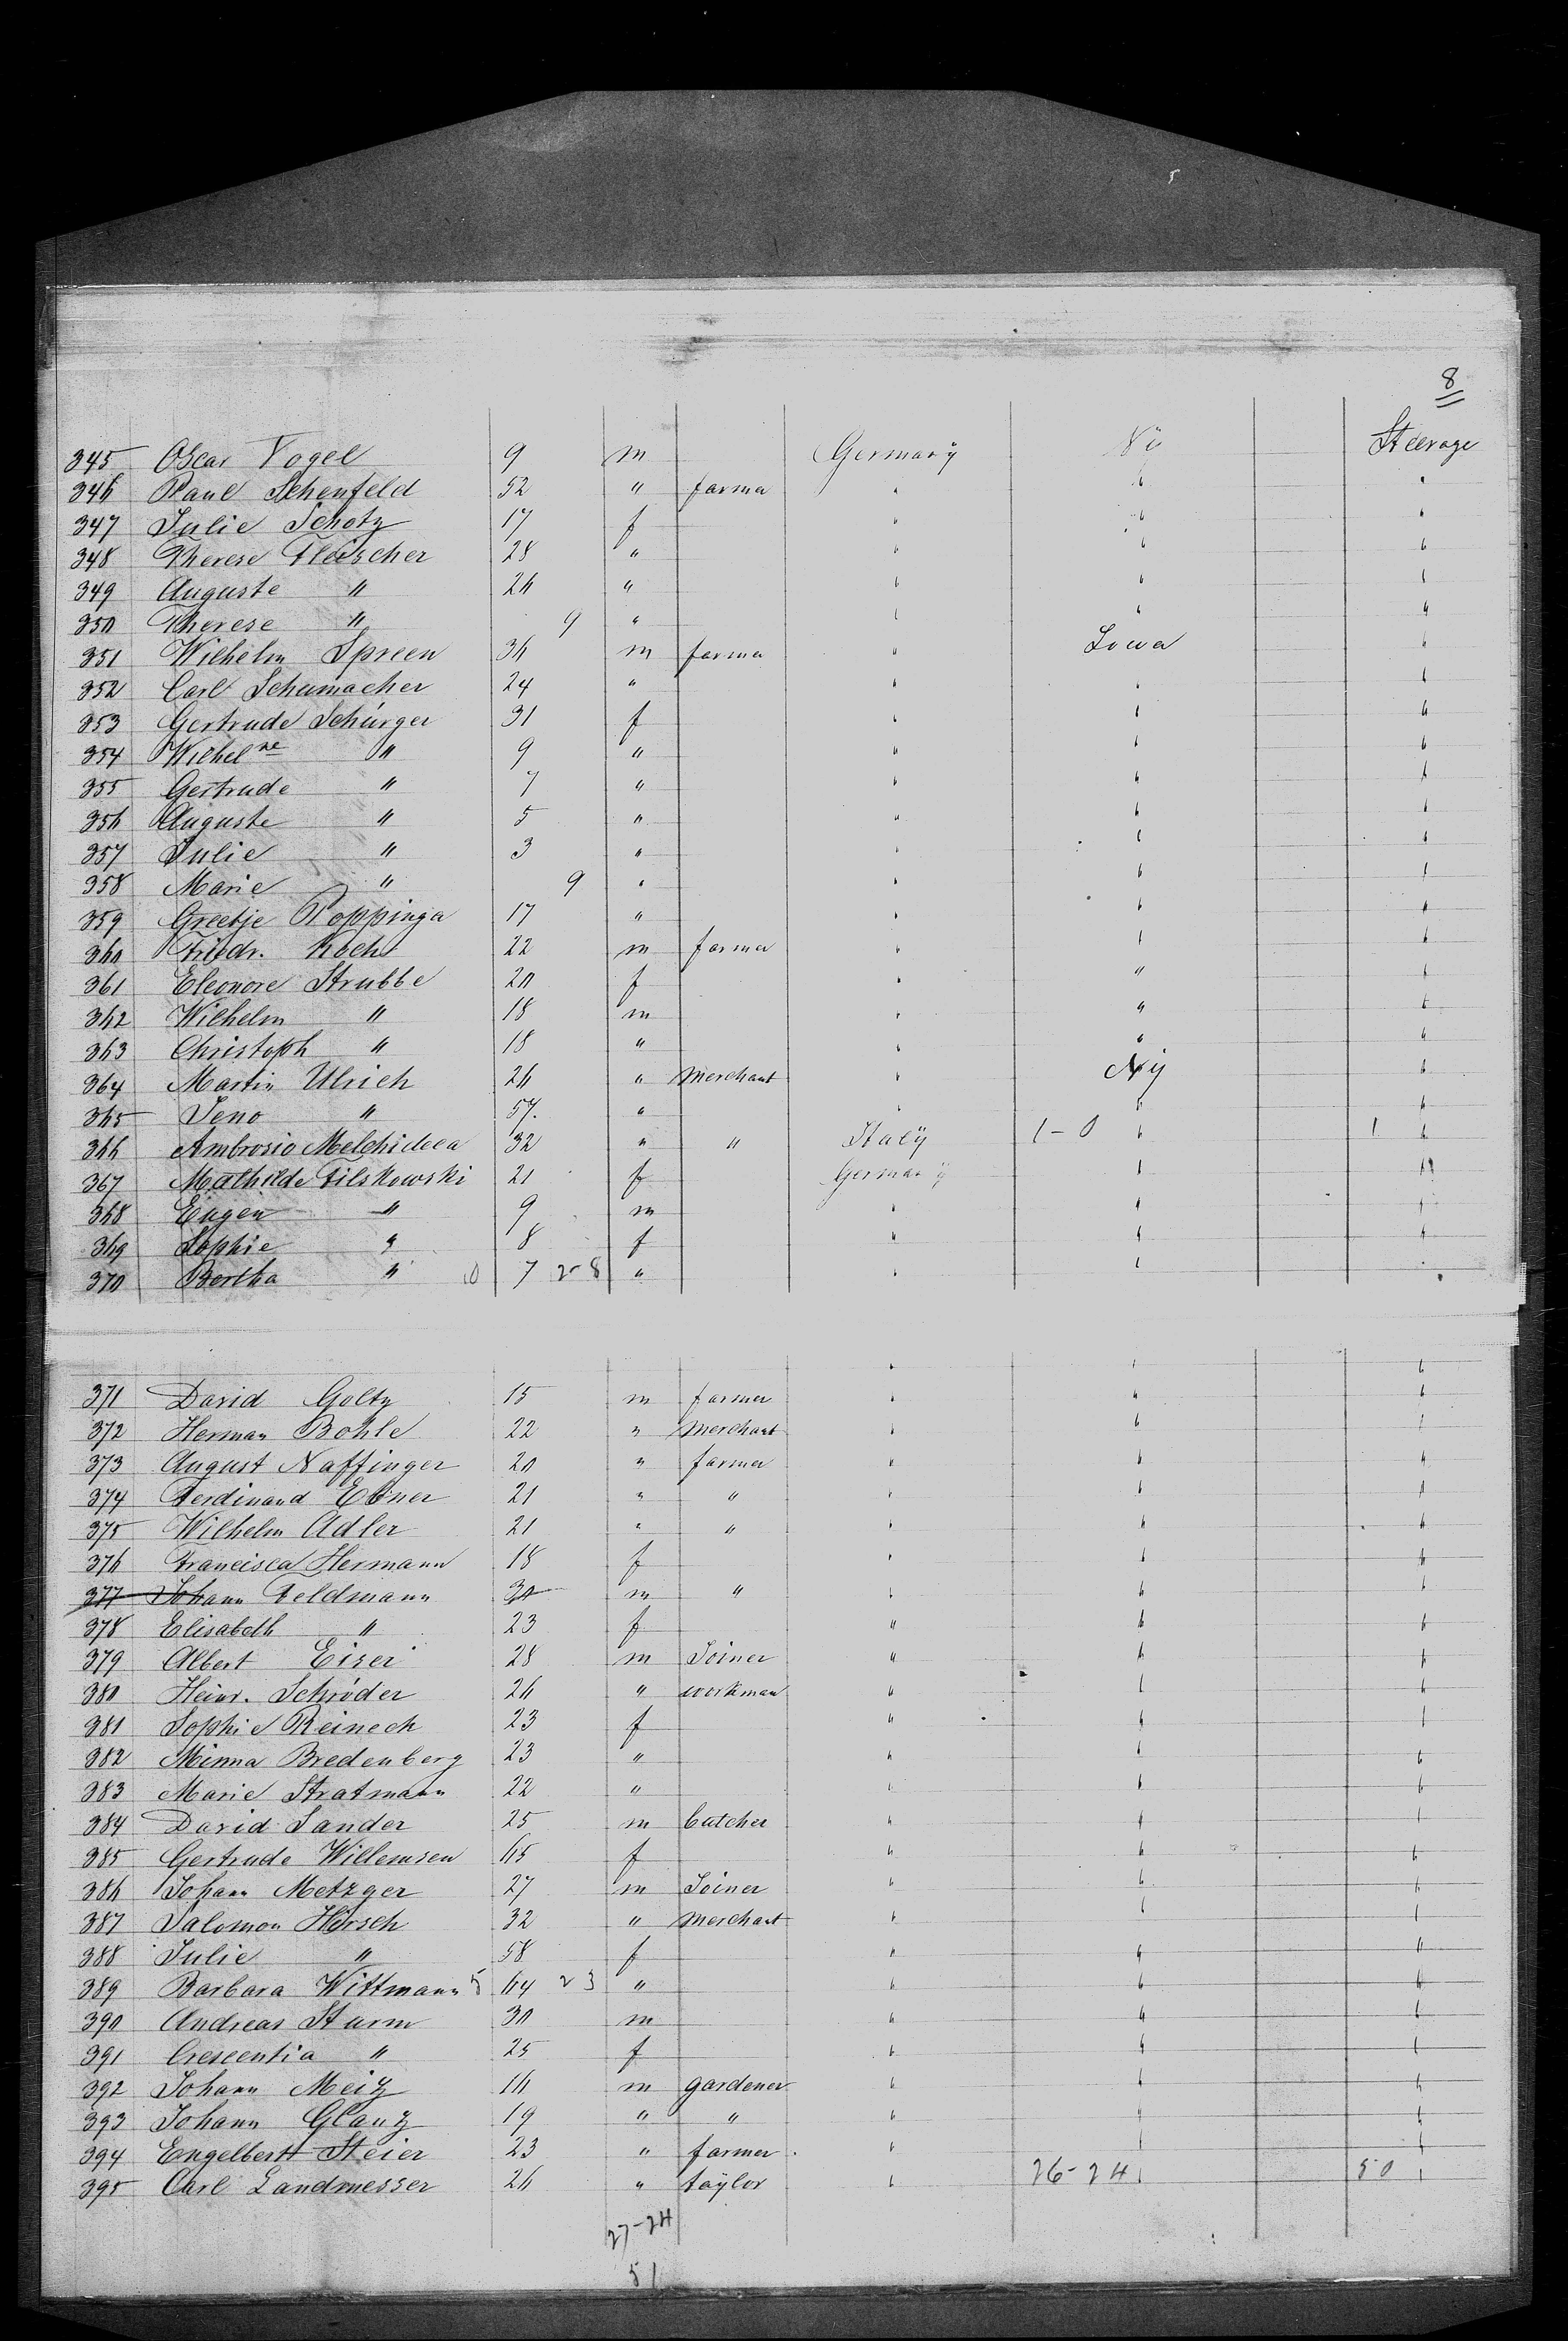 8
345 Oscar Vogel 9 m Germany Ny Steerage
346 Paul Schenfeld 52 " farmer " " "
347 Julie Schotz 17 f " " "
348 Therese Fleischer 28 " " " "
349 Auguste " 26 " " " "
350 Therese " 9 " " " "
351 Wilhelm Spreen 36 m farmer " Iowa "
352 Carl Schumacher 24 " " " "
353 Gertrude Schürger 31 f " " "
354 Wilhelne " 9 " " " "
355 Gertrude " 7 " " " "
356 Auguste " 5 " " " "
357 Julie " 3 " " " "
358 Marie " 9 " " " "
359 Greetje Poppinga 17 " " " "
360 Friedr. Koch 22 m farmer " " "
361 Eleonore Strubbe 20 f " " "
362 Wilhelm " 18 m " " "
363 Christoph " 18 " " " "
364 Martin Ulrich 26 " merchant " Ny "
365 Jeno " 57. " " " "
366 Ambrosio Melchideca 32 " " Italy 1-0 " 1 "
367 Mathilde Filskowski 21 f Germany " "
368 Eugen " 9 m " " "
369 Sophie " 8 f " " "
370 Bertha " 10 7 2-8 " " " "
" " "
371 David Goltz 15 m farmer " " "
372 Herman Bohle 22 " merchant " " "
373 August Naffinger 20 " farmer " " "
374 Ferdinand Ebner 21 " " " " "
375 Wilhelm Adler 21 " " " " "
376 Francisca Hermann 18 f " " "
377 Johann Feldmann 30 m " " " "
378 Elisabeth " 23 f " " "
379 Albert Eiser 28 m Joiner " " "
380 Heinr. Schröder 26 " workman " " "
381 Sophie Reinech 23 f " " "
382 Minna Bredenberg 23 " " " "
383 Marie Stratmann 22 " " " "
384 David Sander 25 m butcher " " "
385 Gertrude Willemsen 65 f " " "
386 Johann Metzger 27 m Joiner " " "
387 Salomon Hirsch 32 " merchant " " "
388 Julie " 58 f " " "
389 Barbara Wittmann 5 64 23 " " " "
390 Andreas Sturm 30 m " " "
391 Crescentia " 25 f " " "
392 Johann Meiz 16 m gardener " " "
393 Johann Glanz 19 " " " " "
394 Engelbert Steier 23 " farmer " " "
395 Carl Landmesser 26 " taylor " 26-24 " 50 "
27-24
51